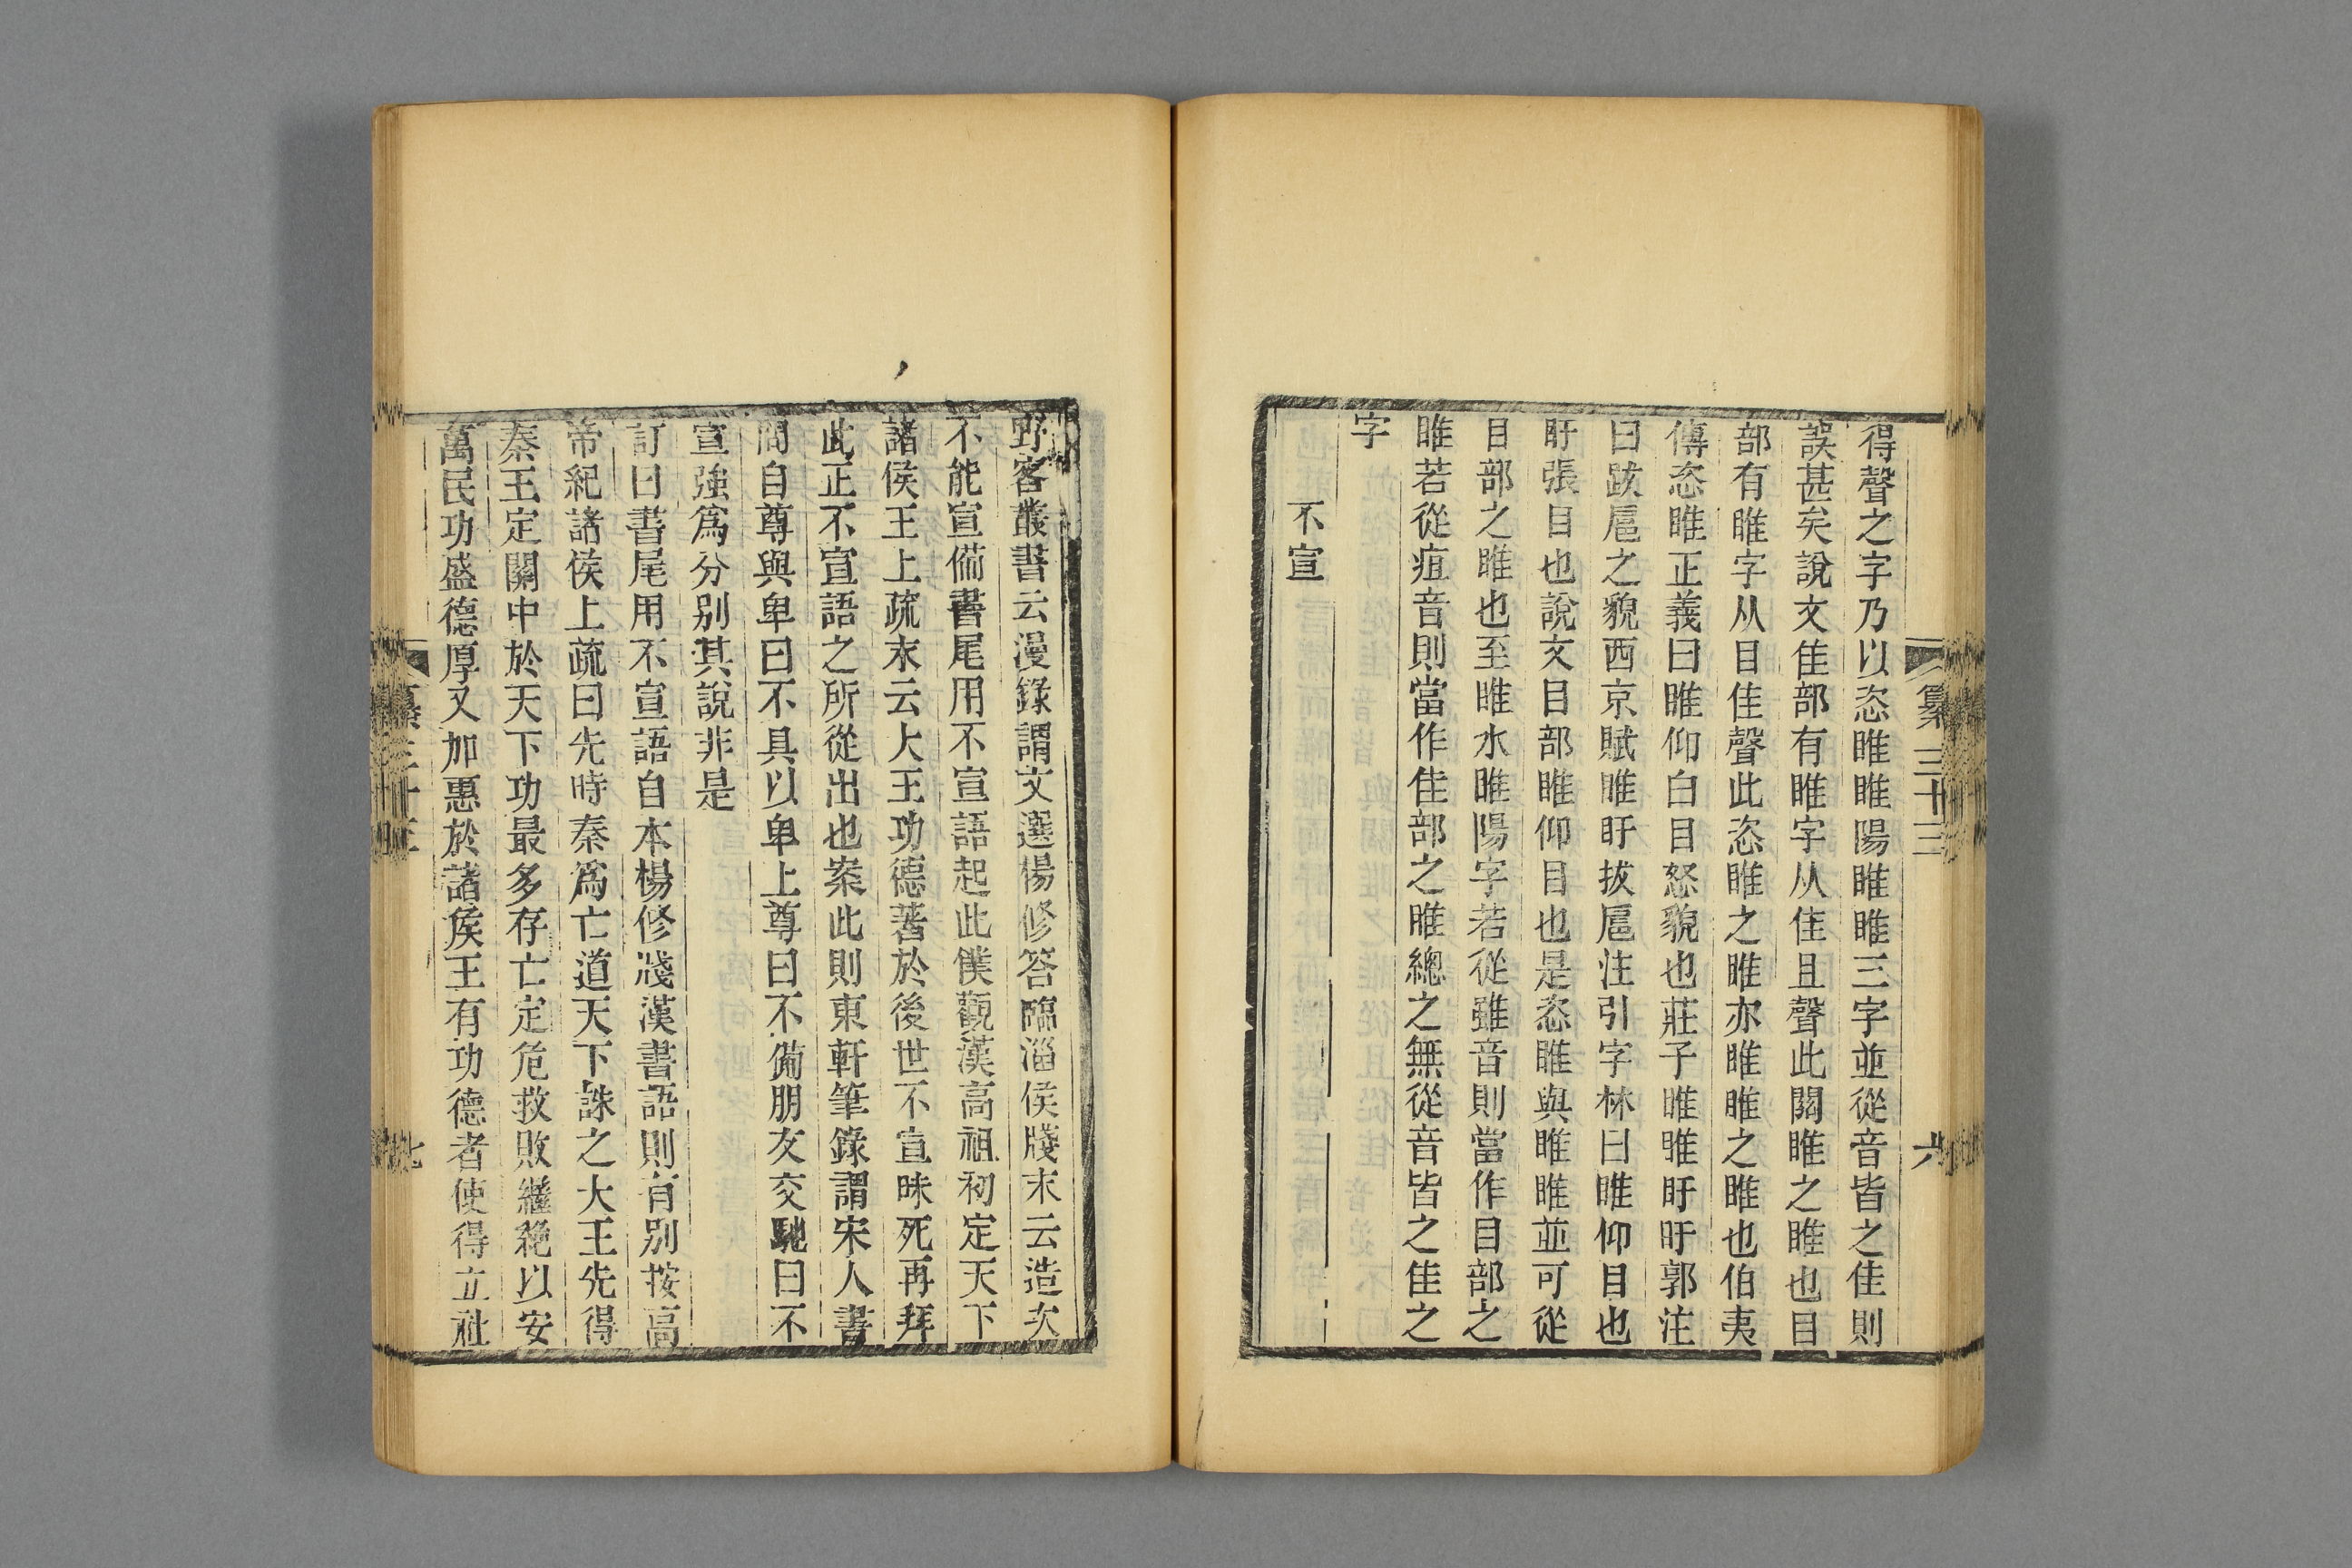 得聲之字乃以恣睢睢陽睢睢三字並從音皆之隹則
誤甚矣說文隹部有雎字从隹且聲此關雎之雎也目
部有睢字从目隹聲此恣睢之睢亦睢睢之睢也伯夷
傳恣睢正義曰睢仰白目怒貌也莊子睢睢盱盱郭注
曰跋扈之貌西京賦睢盱拔扈注引字林曰睢仰目也
盱張目也說文目部睢仰目也是恣睢與睢睢並可從
目部之睢也至睢水睢陽字若從雖音則當作目部之
睢若從疽音則當作隹部之雎總之無從音皆之隹之
字
不宣
纂三十三
六
野客叢書云漫錄謂文選楊修答臨淄侯牋末云造次
不能宣備書尾用不宣語起此僕觀漢高祖初定天下
諸侯王上疏末云大王功德著於後世不宣昧死再拜
此正不宣語之所從出也案此則東軒筆錄謂宋人書
問自尊與卑曰不具以卑上尊曰不備朋友交馳曰不
宣強爲分別其說非是
訂曰書尾用不宣語自本楊修牋漢書語則有別按高
帝紀諸侯上疏曰先時秦爲亡道天下誅之大王先得
秦王定關中於天下功最多存亡定危救敗繼絕以安
萬民功盛德厚又加惠於諸侯王有功德者使得立社
七